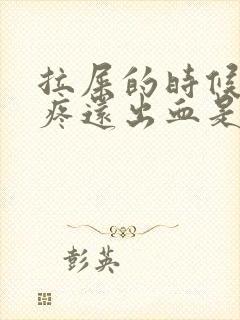 拉屎的時候
疼還出血是
彭英